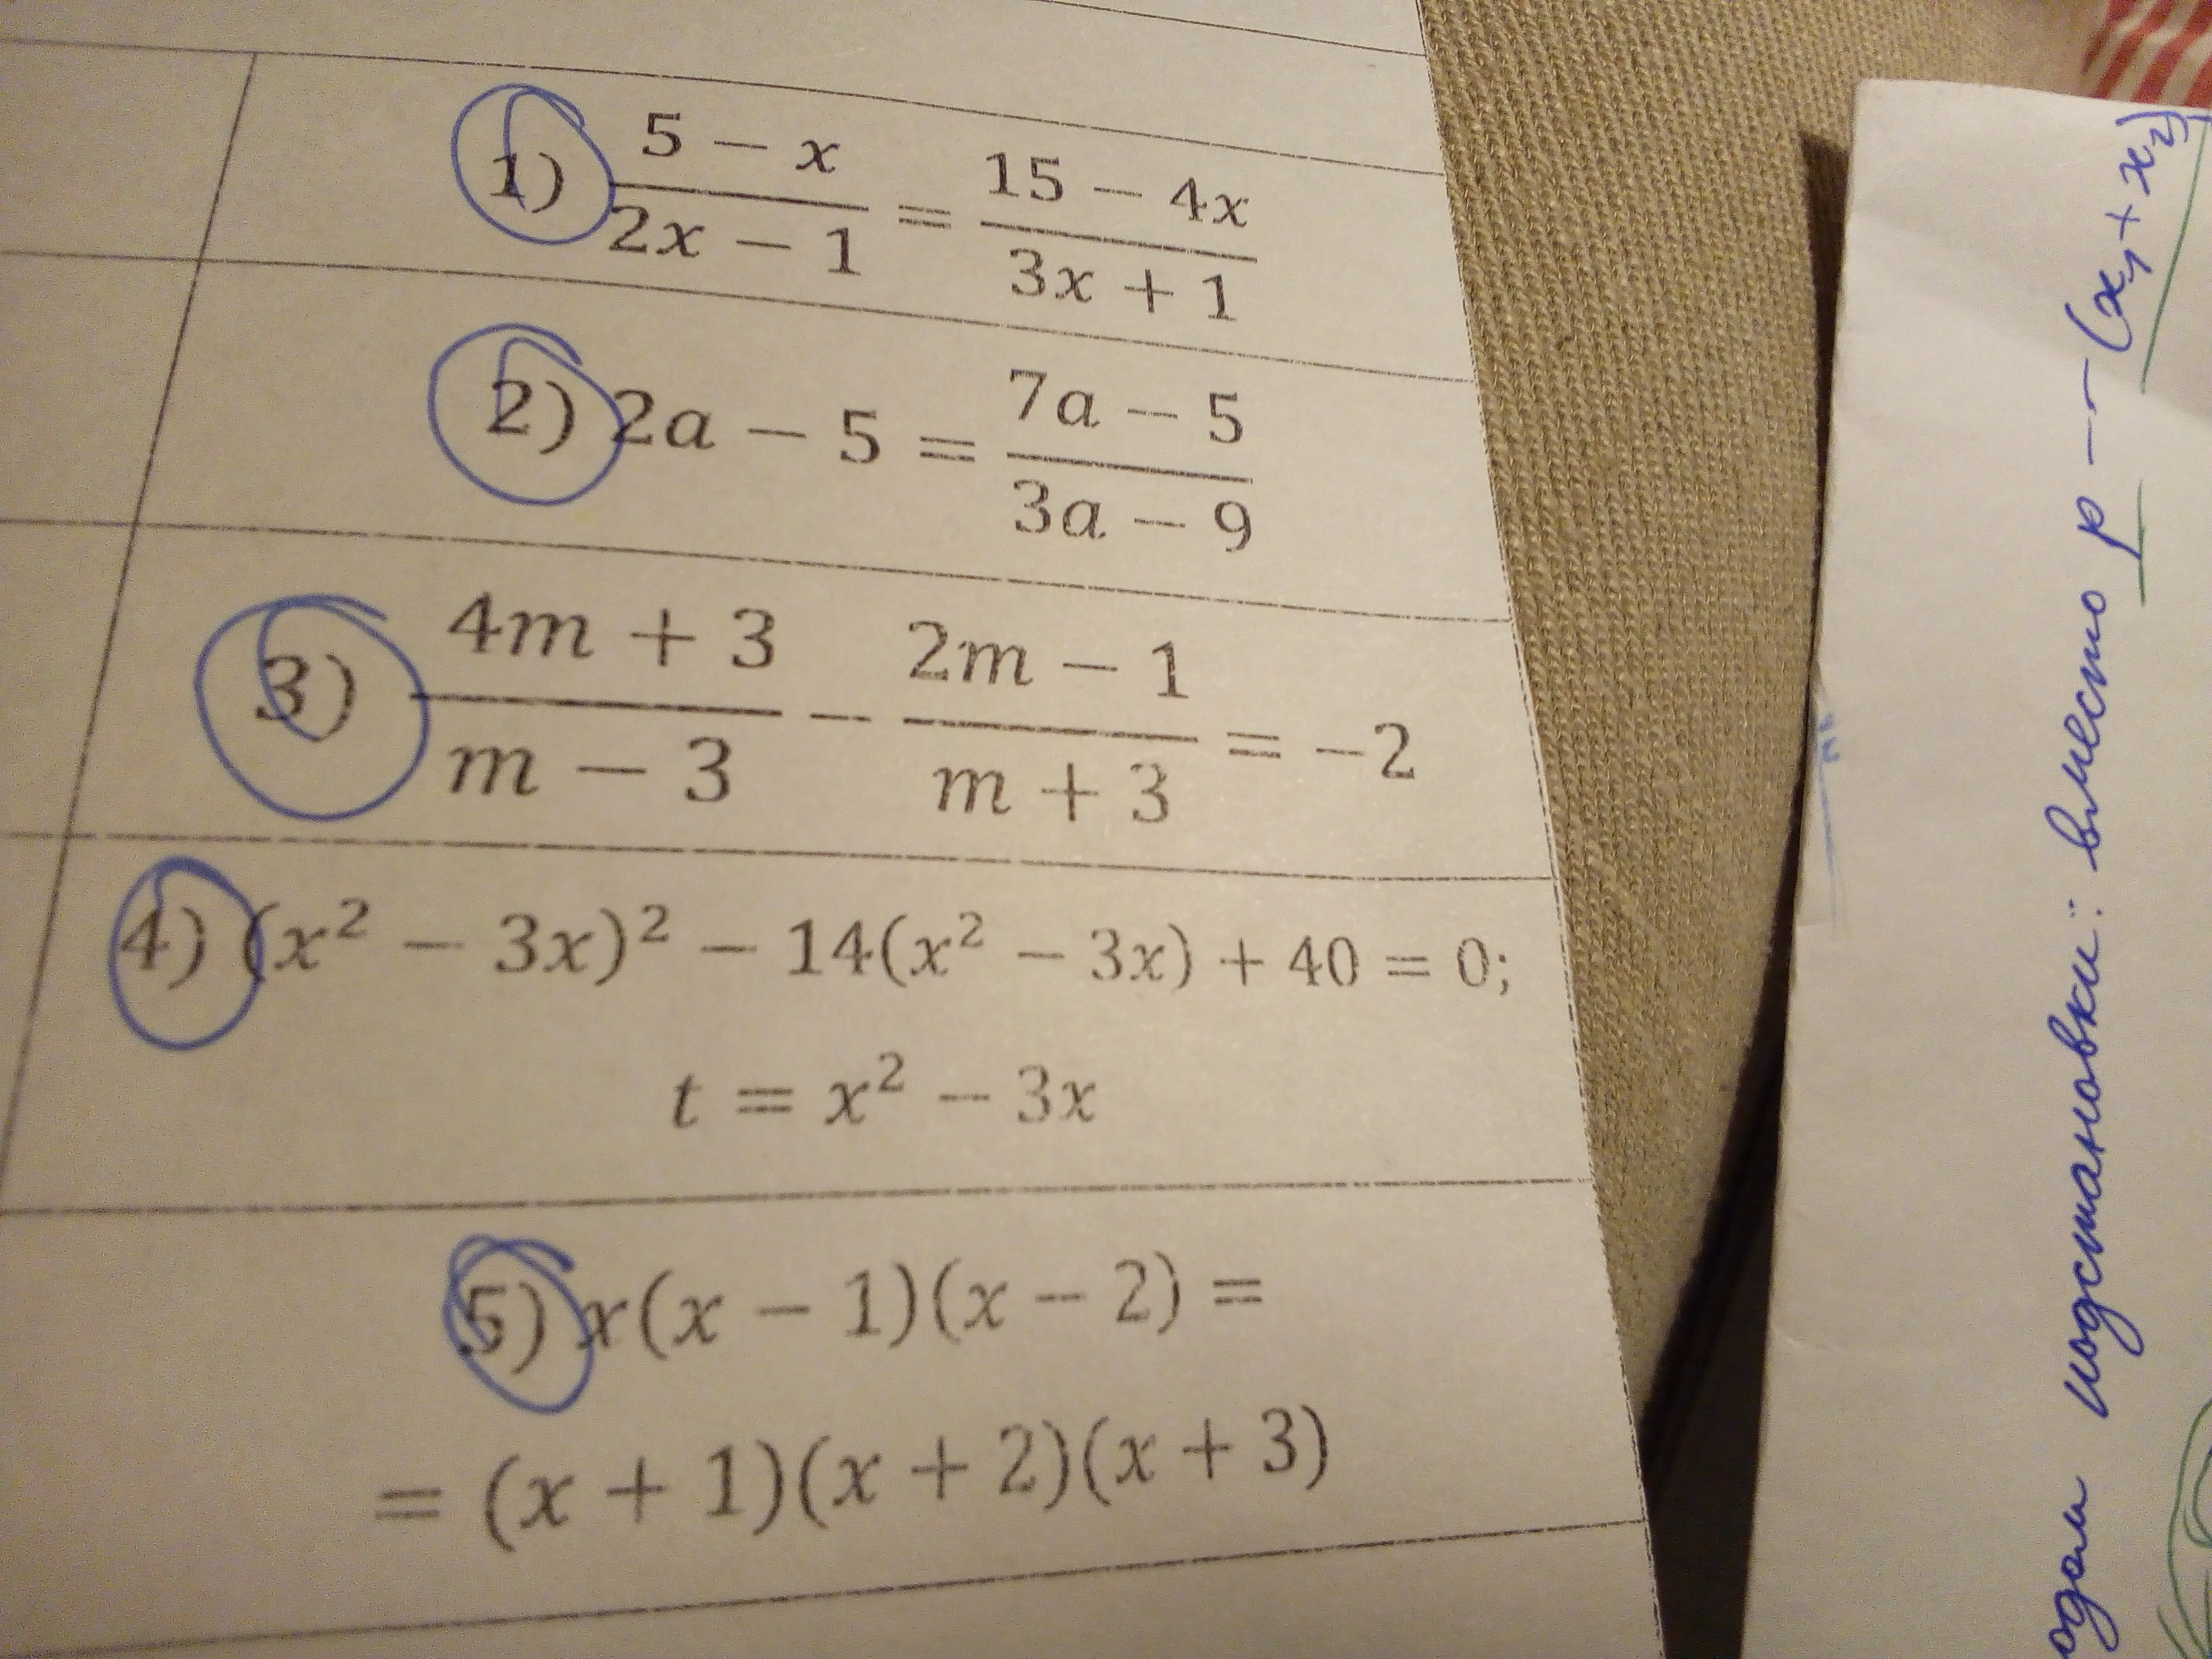 1) (5 − x)/(2x − 1) = (15 − 4x)/(3x + 1)
2) 2a − 5 = (7a − 5)/(3a − 9)
3) (4m + 3)/(m − 3) − (2m − 1)/(m + 3) = −2
4) (x² − 3x)² − 14(x² − 3x) + 40 = 0;
t = x² − 3x
5) x(x − 1)(x − 2) =
= (x + 1)(x + 2)(x + 3)
подстановки: вместо p − −(x₁ + x₂)